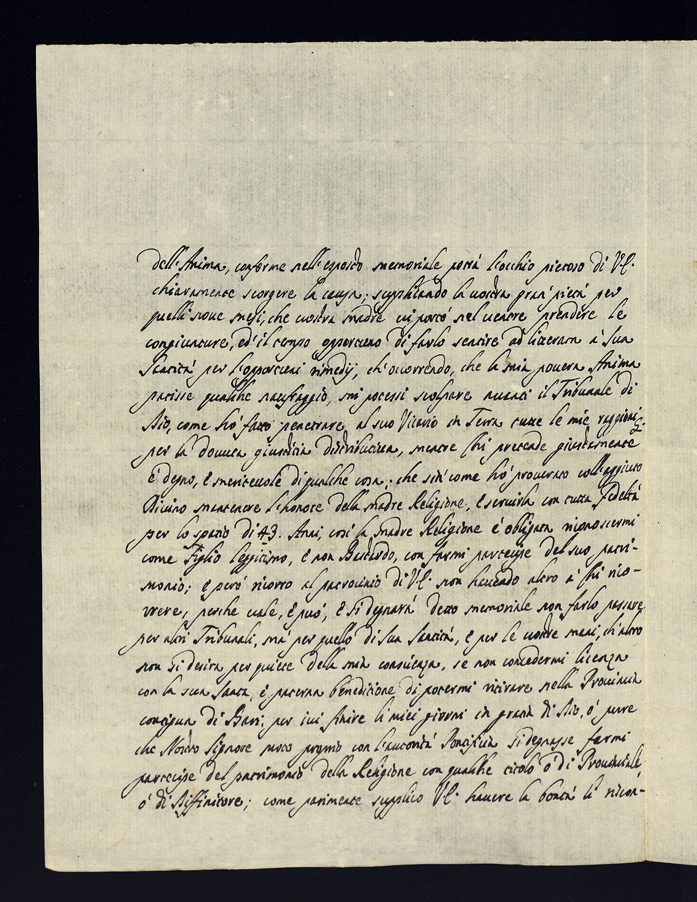 dell'Anima, conforme nell'esposto memoriale potrà l'occhio pietoso di V.E.
chiaramente scorgere la causa; supplicando la vostra gran' pietà per
quelli nove mesi, che vostra madre vi portò nel ventre prendere le
congiunture, ed' il tempo opportuno di farlo sentire ad litteram à Sua
Santità per l'opportuni rimedij, ch'occorrendo, che la mia povera Anima
patisse qualche naufraggio, mi potessi scolpare avanti il Tribunale di
Dio, come hò fatto penetrare, al suo Vicario in Terra tutte le mie raggioni
per la dovuta giustitia distributiva, mentre chi pretende giustamente
è degno, è meritevole di qualche cosa; che sicome hò procurato coll'aggiuto
Divino mantenere l'honore della madre Religione, è servirla con tutta fedeltà
per lo spatio di 43. Anni, così la madre Religione è obligata riconoscermi
come figlio legittimo, è non Bastardo, con farmi partecipe del suo patri-
monio; è però ricorro al patrocinio di V.E. non havendo altro à chi rico-
rrere, perche vale, è può, è si degnarà detto memoriale non farlo passare
per altri Tribunali, mà per quello di Sua Santità, è per le vostre mani, ch'altro
non si desira per quiete della mia conscienza, se non concedermi licenza
con la sua santa è paterna benedittione di potermi ritirare nella Provincia
contigua di Bari, per ivi finire li miei giorni in gratia di Dio, ò pure
che Nostro Signore motu proprio con l'autorità Pontificia si degnasse farmi
partecipe del patrimonio della Religione con qualche titolo ò di Provinciale
ò di Diffinitore; come parimente supplico V.E. havere la bontà li ricor-